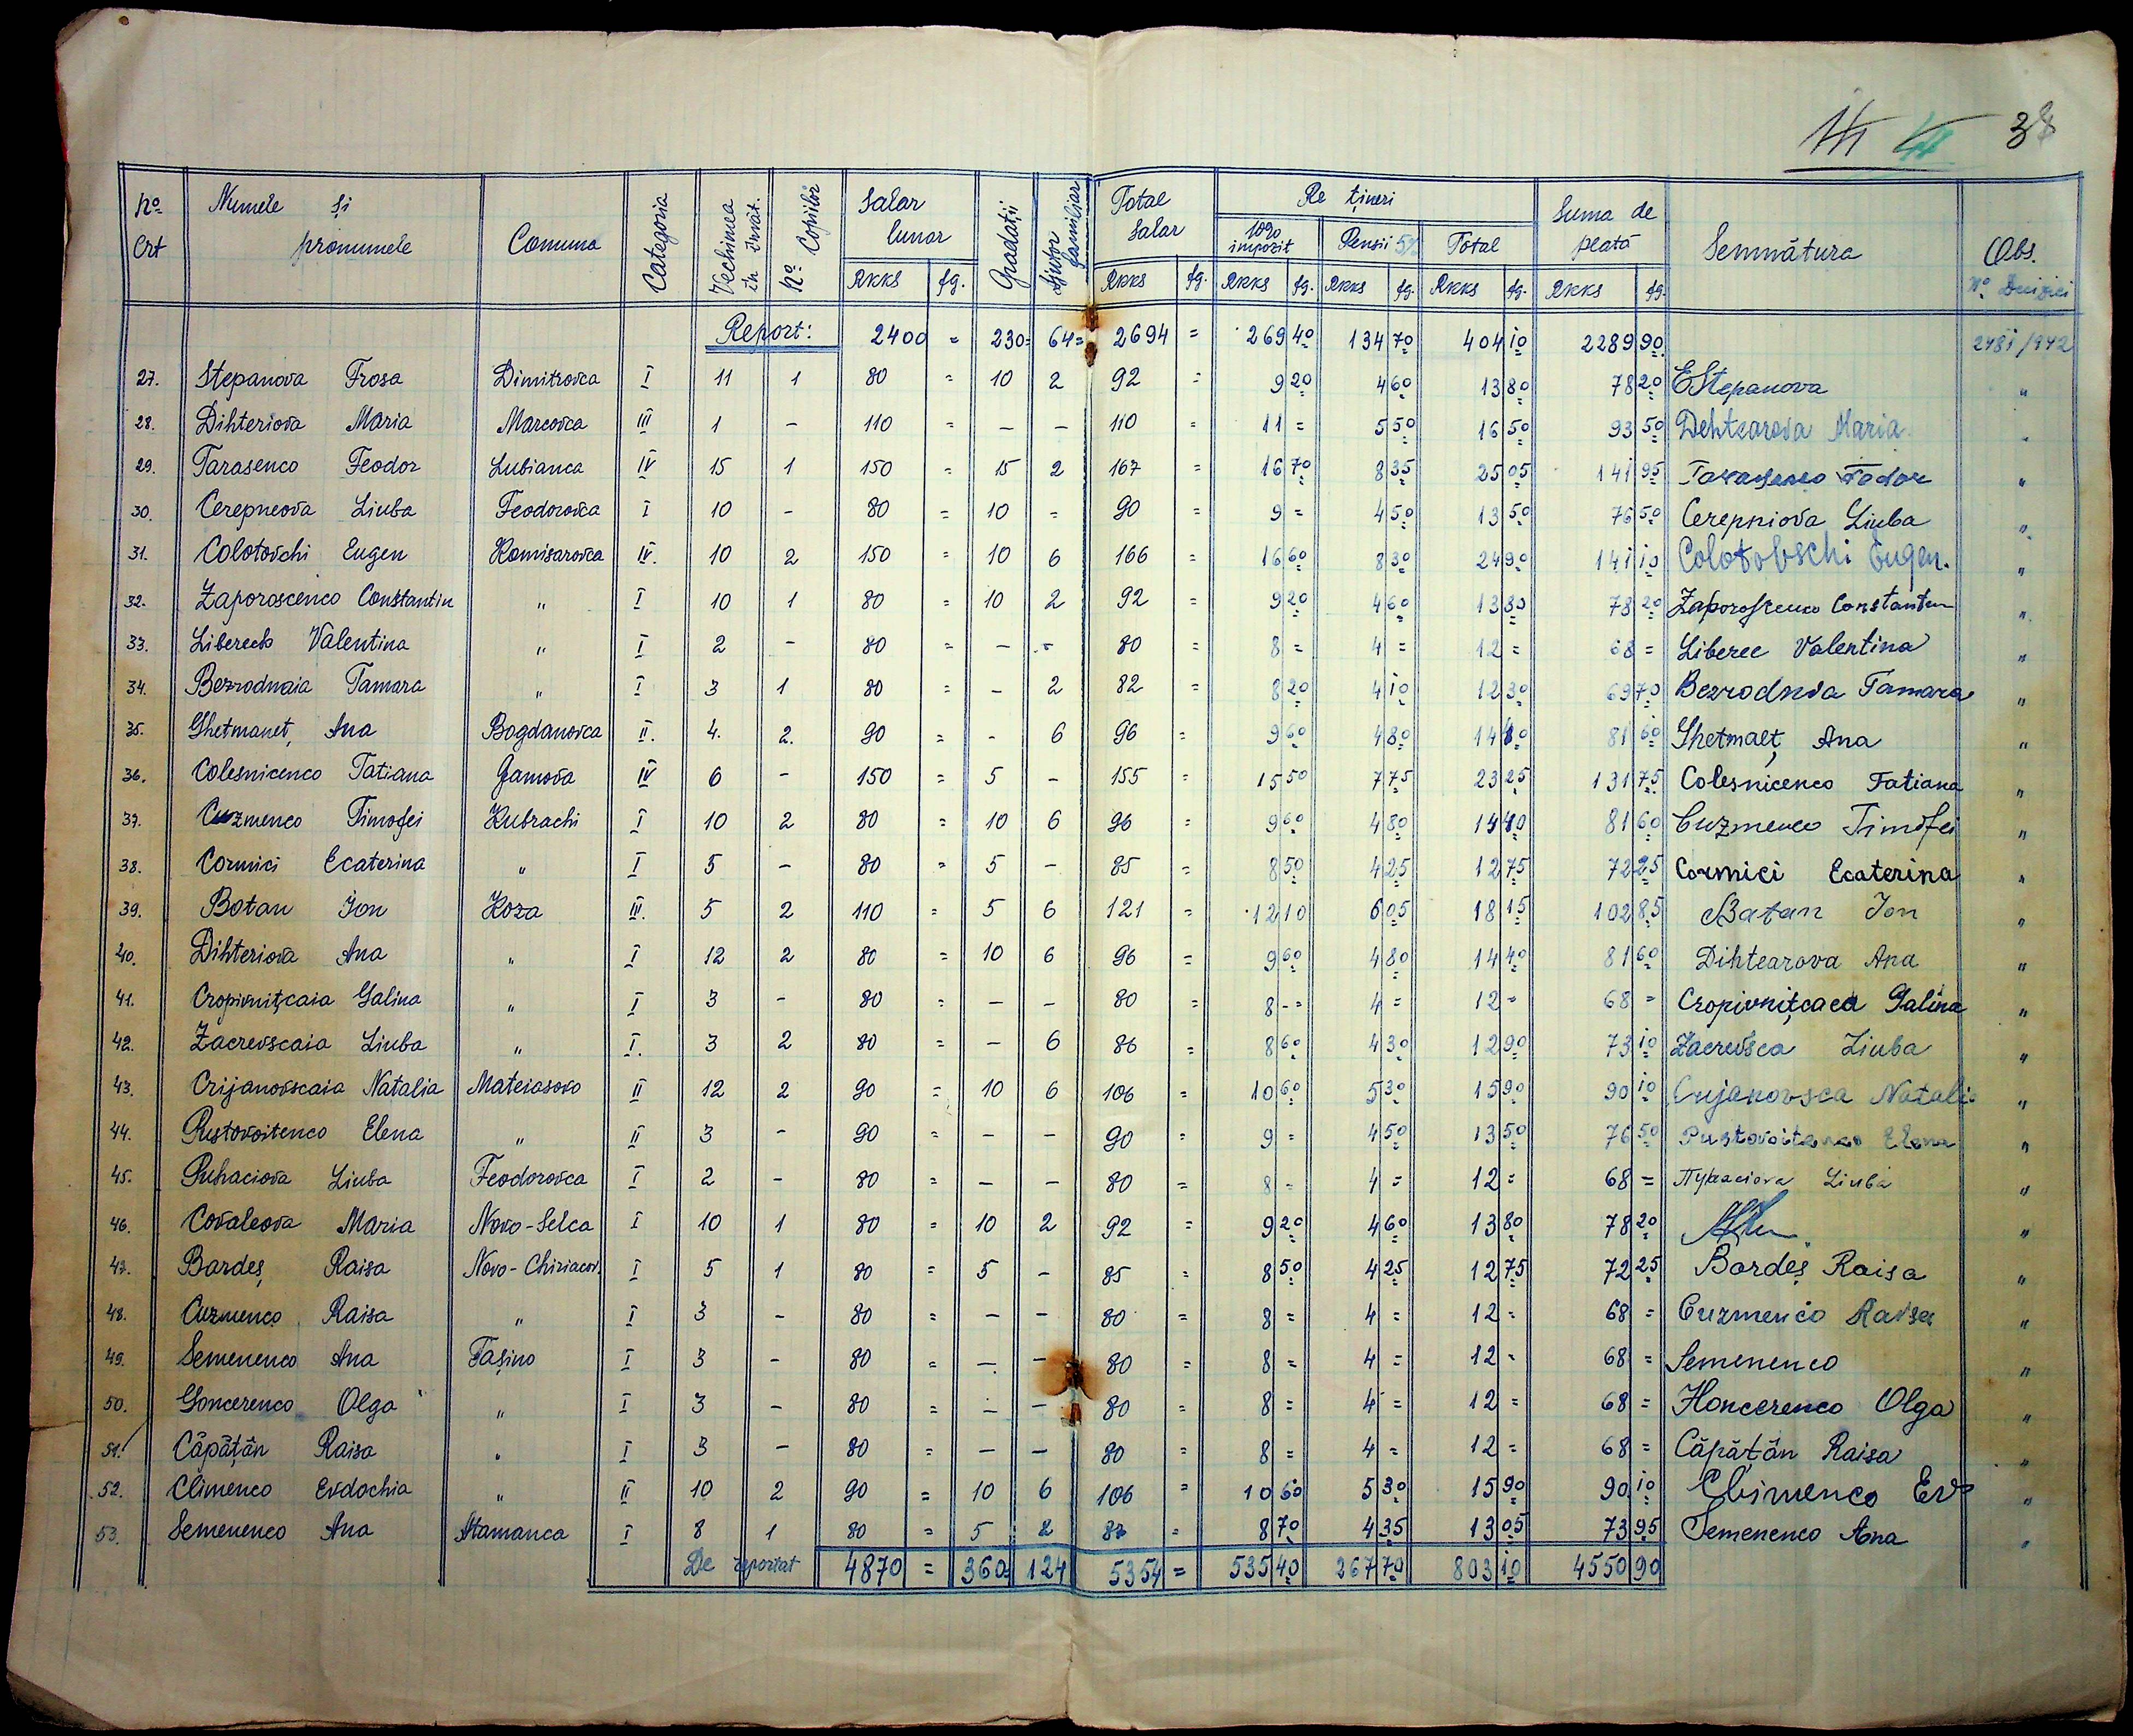 38
No Crt | Numele și pronumele | Comuna | Categoria | Vechimea în învăt. | No Copiilor | Salar lunar RKKS fg. | Gradații | Ajutor familiar | Total Salar RKKS fg. | Rețineri 10% impozit RKKS fg. | Pensii 5% RKKS fg. | Total RKKS fg. | Suma de plată RKKS fg. | Semnătura | Obs. No Deciziei
Report: 2400 = 230= 64= 2694 = 269 40 134 70 404 10 2289 90 2481/942
27. Stepanova Frosa Dimitrovca I 11 1 80 = 10 2 92 = 9 20 4 60 13 80 78 20 EStepanova "
28. Dihteriova Maria Marcovca III 1 - 110 = - - 110 = 11 = 5 50 16 50 93 50 Dehtearova Maria "
29. Tarasenco Feodor Lubianca IV 15 1 150 = 15 2 167 = 16 70 8 35 25 05 141 95 Tarasenco Fodor "
30. Cerepneova Liuba Feodorovca I 10 - 80 = 10 = 90 = 9 = 4 50 13 50 76 50 Cerepniova Liuba "
31. Colotovchi Eugen Komisarovca IV. 10 2 150 = 10 6 166 = 16 60 8 30 24 90 141 10 Colotovschi Eugen. "
32. Zaporoscenco Constantin " I 10 1 80 = 10 2 92 = 9 20 4 60 13 80 78 20 Zaporoscenco Constantin "
33. Libereck Valentina " I 2 - 80 = - - 80 = 8 = 4 = 12 = 68 = Liberec Valentina "
34. Bezrodnaia Tamara " I 3 1 80 = - 2 82 = 8 20 4 10 12 30 69 70 Bezrodnia Tamara "
35. Ghetmaneț Ana Bogdanovca II. 4. 2. 90 = - 6 96 = 9 60 4 80 14 40 81 60 Ghetmaeț Ana "
36. Colesnicenco Tatiana Gamova IV 6 - 150 = 5 - 155 = 15 50 7 75 23 25 131 75 Colesnicenco Tatiana "
37. Cuzmenco Timofei Kubrachi I 10 2 80 = 10 6 96 = 9 60 4 80 14 40 81 60 Cuzmenco Timofei "
38. Cornici Ecaterina " I 5 - 80 = 5 - 85 = 8 50 4 25 12 75 72 25 Cormici Ecaterina "
39. Botan Ion Koza III. 5 2 110 = 5 6 121 = 12 10 6 05 18 15 102 85 Batan Ion "
40. Dihteriova Ana " I 12 2 80 = 10 6 96 = 9 60 4 80 14 40 81 60 Dihtearova Ana "
41. Cropivnițcaia Galina " I 3 - 80 = - - 80 = 8 - = 4 = 12 = 68 = Cropivnițcaea Galina "
42. Zacrevscaia Liuba " I. 3 2 80 = - 6 86 = 8 60 4 30 12 90 73 10 Zacrevsca Liuba "
43. Crijanovscaia Natalia Mateiasovo II 12 2 90 = 10 6 106 = 10 60 5 30 15 90 90 10 Crijanovsca Natali "
44. Pustovoitenco Elena " II 3 - 90 = - - 90 = 9 = 4 50 13 50 76 50 Pustovoitenco Elena "
45. Puhaciova Liuba Feodorovca I 2 - 80 = - - 80 = 8 = 4 = 12 = 68 = Пуhaciova Liuba "
46. Covaleova Maria Novo-Selca I 10 1 80 = 10 2 92 = 9 20 4 60 13 80 78 20 "
47. Bardeș Raisa Novo-Chiriacov. I 5 1 80 = 5 - 85 = 8 50 4 25 12 75 72 25 Bardeș Raisa "
48. Cuzmenco Raisa " I 3 - 80 = - - 80 = 8 = 4 = 12 = 68 = Cuzmenco Raisa "
49. Semenenco Ana Tașino I 3 - 80 = - - 80 = 8 = 4 = 12 = 68 = Semenenco "
50. Goncerenco Olga " I 3 - 80 = - - 80 = 8 = 4 = 12 = 68 = Honcerenco Olga "
51. Căpățân Raisa " I 3 - 80 = - - 80 = 8 = 4 = 12 = 68 = Căpătân Raisa "
52. Climenco Evdochia " II 10 2 90 = 10 6 106 = 10 60 5 30 15 90 90 10 Climenco Ev "
53. Semenenco Ana Atamanca I 8 1 80 = 5 2 87 = 8 70 4 35 13 05 73 95 Semenenco Ana "
De reportat 4870 = 360= 124 5354 = 535 40 267 70 803 10 4550 90